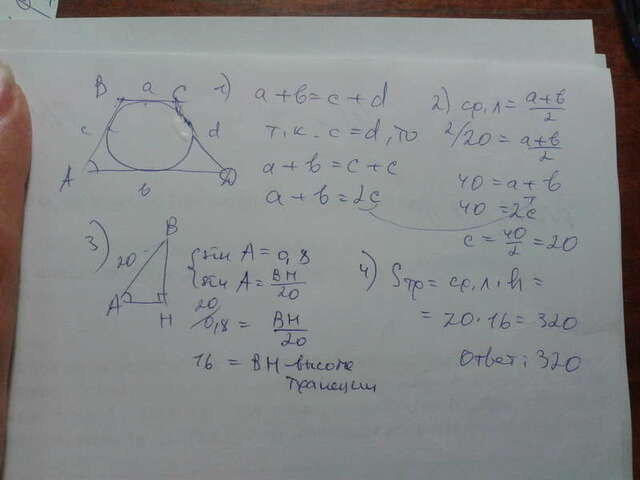 B a C
c d
A D
b
1) a + b = c + d
т.к. c = d, то
a + b = c + c
a + b = 2c
2) ср.л = a+b/2
2/20 = a+b/2
40 = a + b
40 = 2c
c = 40/2 = 20
3) B
20
A
H
sin A = 0,8
sin A = BH/20
20
0,8 = BH/20
16 = BH - высота
трапеции
4) Sтр = ср.л · h =
= 20 · 16 = 320
Ответ: 320